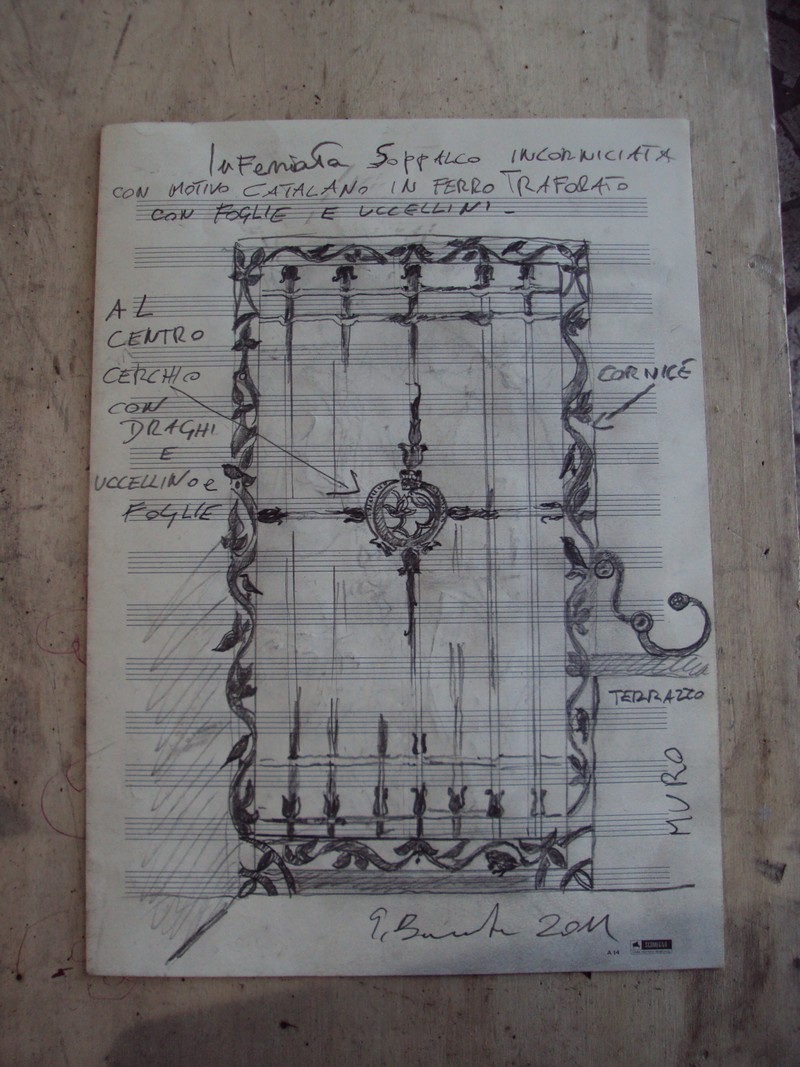 InFerriata Soppalco INCORNICIATA
CON MOTIVO CATALANO IN FERRO TRAFORATO
CON FOGLIE E UCCELLINI -
AL
CENTRO
CERCHIO
CON
DRAGHI
E
UCCELLINO e
FOGLIE
CORNICE
TERRAZZO
MURO
2011
A 14